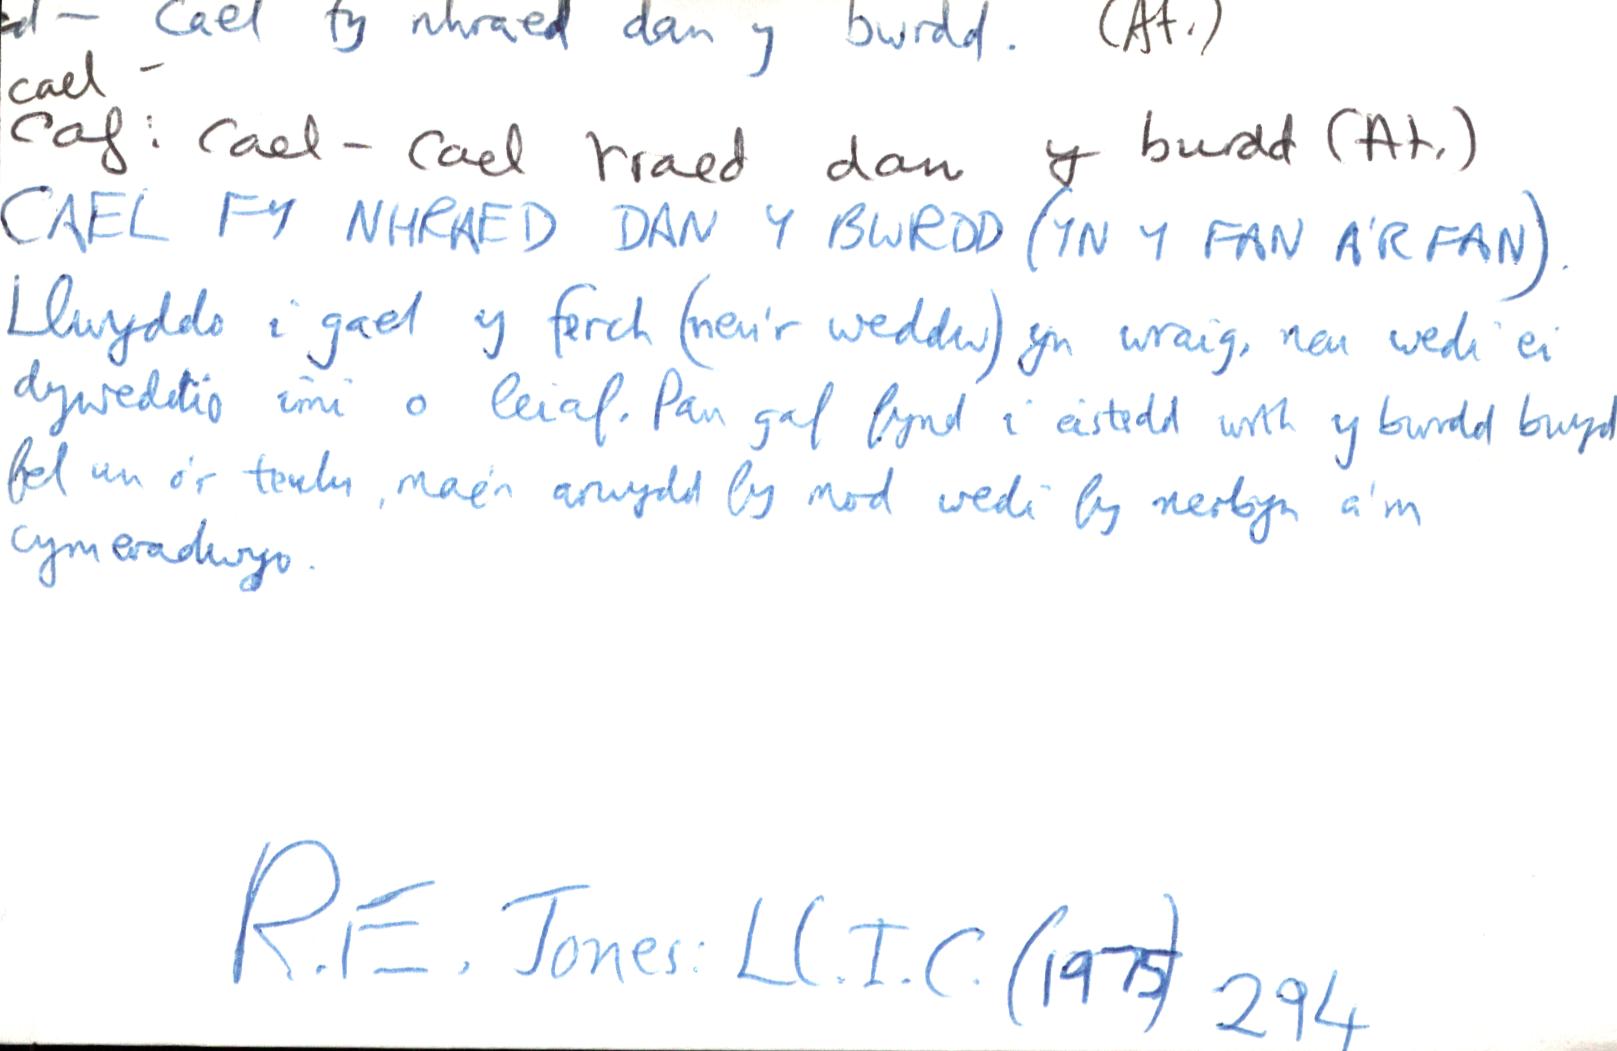 d – Cael fy nhraed dan y bwrdd. (At.)
cael –
Caf: Cael – Cael traed dan y bwrdd (At.)
CAEL FY NHRAED DAN Y BWRDD (YN Y FAN A'R FAN).
Llwyddo i gael y ferch (neu'r weddw) yn wraig, neu wedi ei
dyweddïo imi o leiaf. Pan gaf fynd i eistedd wrth y bwrdd bwyd
fel un o'r teulu, mae'n arwydd fy mod wedi fy nerbyn a'm
cymeradwyo.
R.E. Jones: Ll.I.C. (1975) 294